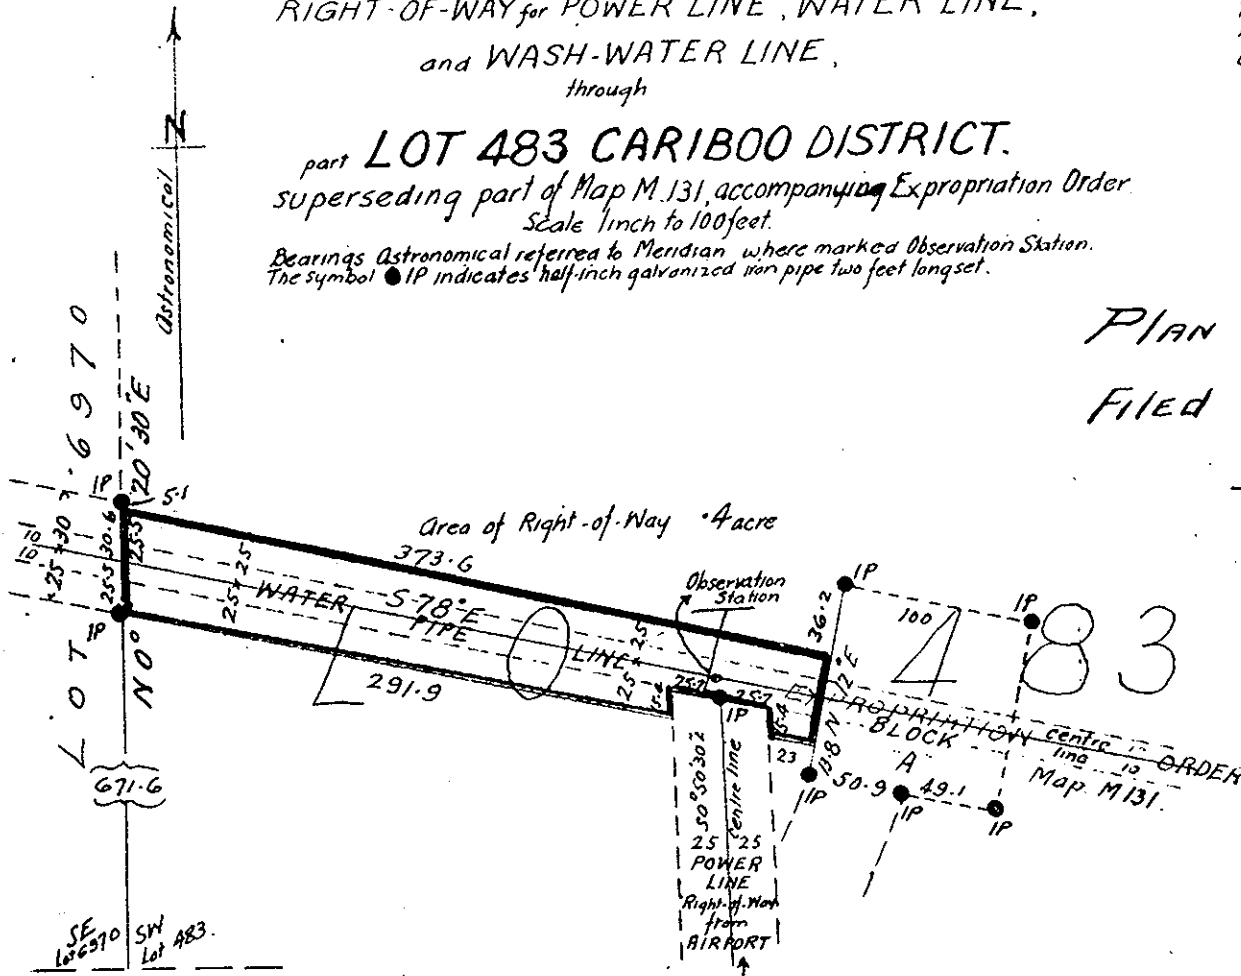 RIGHT-OF-WAY for POWER LINE, WATER LINE,
and WASH-WATER LINE,
through
part LOT 483 CARIBOO DISTRICT.
superseding part of Map M.131, accompanying Expropriation Order
Scale 1inch to 100feet.
Bearings Astronomical referred to Meridian where marked Observation Station.
The symbol ● IP indicates half-inch galvanized iron pipe two feet long set.
N
Astronomical
PLAN
FILED
LOT 6970
N 0° 20' 30" E
IP
5.1
Area of Right-of-Way .4 acre
373.6
10
10
25.5
30.6
25.5
25
25
WATER PIPE LINE
S 78° E
Observation
Station
IP
36.2
100
IP
L O 4 83
IP
291.9
25
25
5.4
25.7
25.7
IP
5.4
23
N 12° E
EXPROPRIATION ORDER
BLOCK
A
centre
line
10
Map M131.
13.8
IP
50.9
49.1
IP
IP
671.6
S0°50'30"
Centre line
25 25
POWER
LINE
Right-of-Way
from
AIRPORT
SE
Lot 6970
SW
Lot 483.